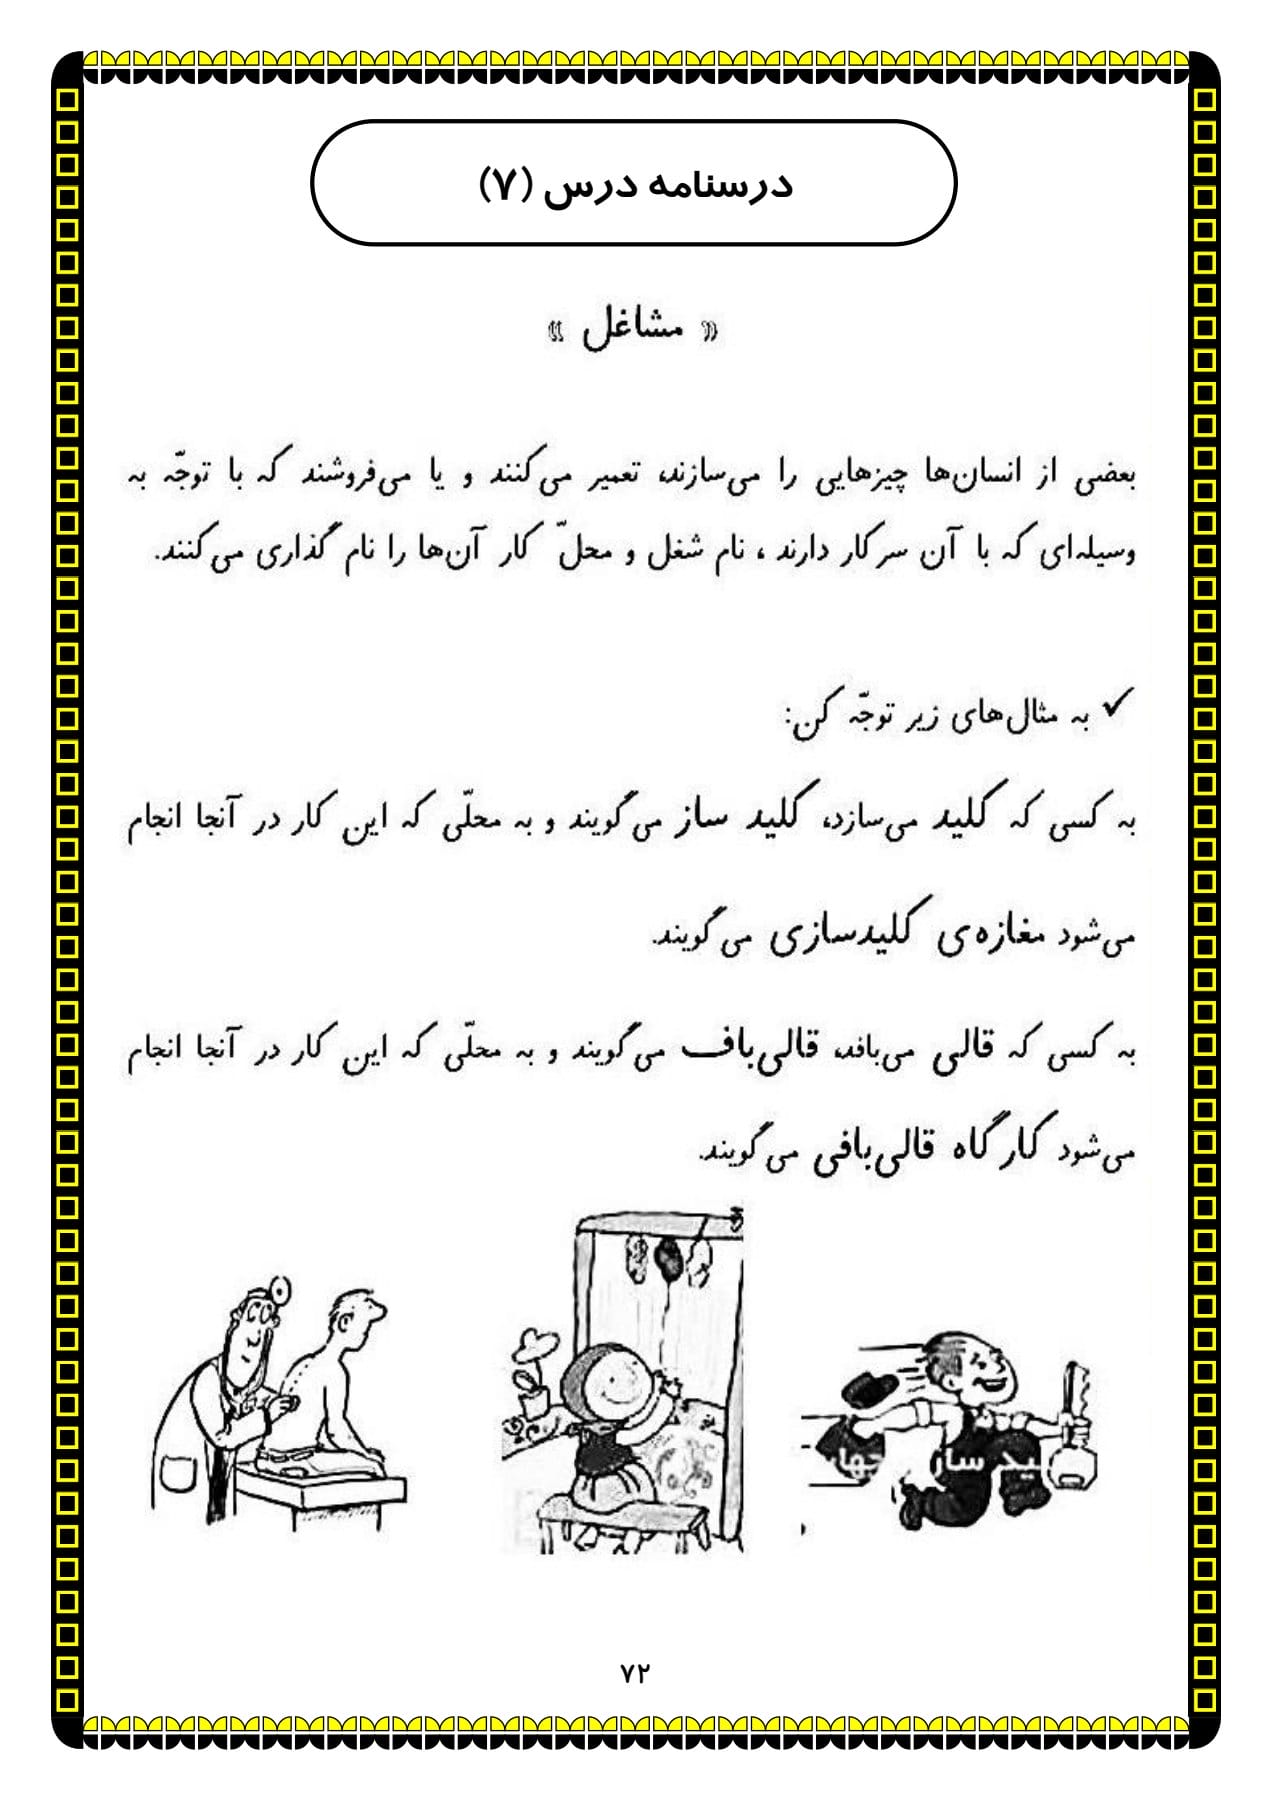 درسنامه درس (۷)
« مشاغل »
بعضی از انسان‌ها چیزهایی را می‌سازند، تعمیر می‌کنند و یا می‌فروشند که با توجّه به
وسیله‌ای که با آن سر کار دارند ، نام شغل و محلّ کار آن‌ها را نام گذاری می‌کنند.
✓ به مثال‌های زیر توجّه کن:
به کسی که کلید می‌سازد، کلید ساز می‌گویند و به محلّی که این کار در آنجا انجام
می‌شود مغازه‌ی کلیدسازی می‌گویند.
به کسی که قالی می‌بافد، قالی‌باف می‌گویند و به محلّی که این کار در آنجا انجام
می‌شود کارگاه قالی‌بافی می‌گویند.
۷۲